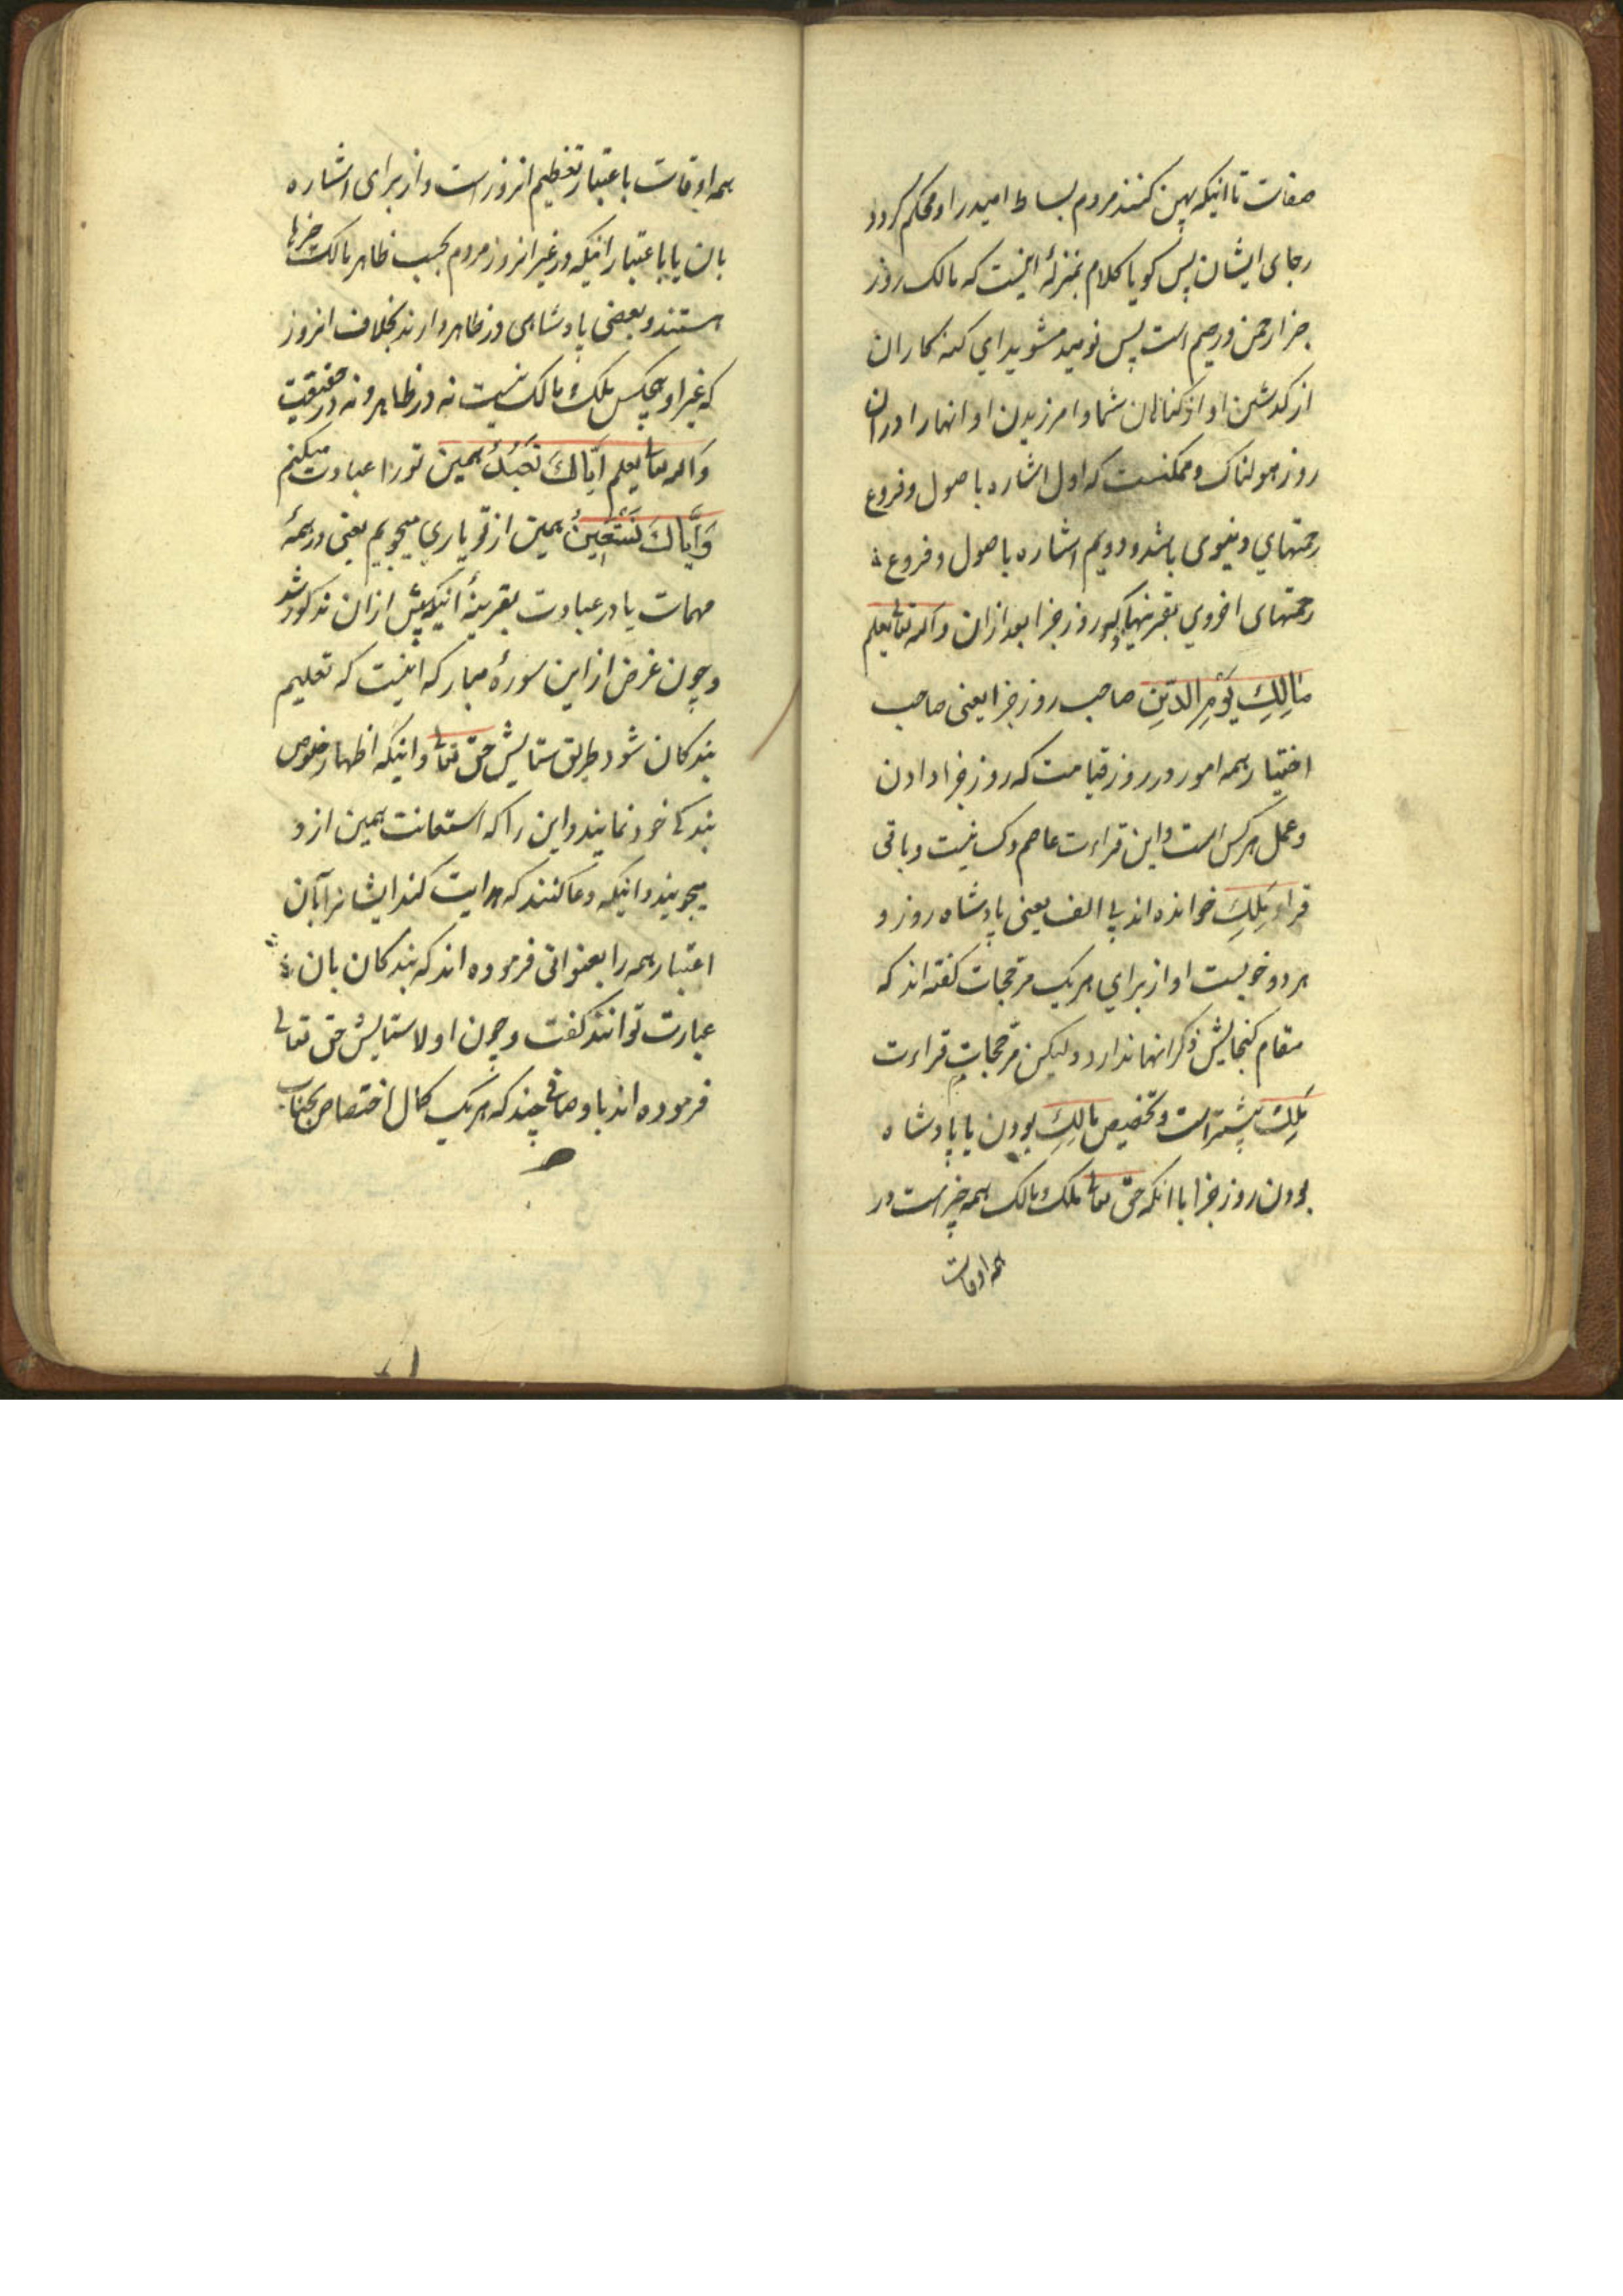 صفات تا اینکه پهن کنند مردم بساط امید را و محکم کردد
رجای ایشان پس کویا کلام بمنزلهٔ اینست که مالک روز
جزا رحمن و رحیم است پس نومید مشوید ای کنه کاران
از کذشتن او از کناهان شما و امرزیدن او انها را در ان
روز هولناک و ممکنست که اول اشاره باصول و فروع
رحمتهای دنیوی باشد و دویم اشاره باصول و فروع
رحمتهای اخروی بقرینهٔ ذکر روز جزا بعد ازان و الله تعالی یعلم
مَالِكِ يَوْمِ الدِّينِ صاحب روز جزا یعنی صاحب
اختیار همه امور در روز قیامت که روز جزا دادن
و عمل هرکس است و این قراءت عاصم و کسائیست و باقی
قراء مَلِكِ خوانده اند بی الف یعنی پادشاه روز و
هر دو خوبست و از برای هر یک مرجحات کفته اند که
مقام کنجایش ذکر انها ندارد و لیکن مرجحات قراءت
مَلِكِ بیشتر است و تخصیص مالِكِ بودن یا پادشاه
بودن روز جزا با انکه حق تعالی ملک و مالک همه چیز است در
همه اوقات
همه اوقات باعتبار تعظیم انروز است و از برای اشاره
بان یا باعتبار اینکه در غیر انروز مردم بحسب ظاهر مالک چیزها
هستند و بعضی پادشاهی در ظاهر دارند بخلاف انروز
که غیر او هیچکس ملک و مالک نیست نه در ظاهر و نه در حقیقت
و الله تعالی یعلم اِيَّاكَ نَعْبُدُ همین تو را عبادت میکنم
وَاِيَّاكَ نَسْتَعِينُ همین از تو یاری میجویم یعنی در همهٔ
مهمات یا در عبادت بقرینهٔ اینکه پیش ازان مذکور شد
و چون غرض از این سورهٔ مبارکه اینست که تعلیم
بندکان شود طریق ستایش حق تعالی و اینکه اظهار خلوص
بندکی خود نمایند و این را که استعانت همین از و
میجویند و اینکه دعا کنند که هدایت کند ایشانرا بآن
اعتبار همه را بعنوانی فرموده اند که بندکان بان
عبارت توانند کفت و چون اولا ستایش حق تعالی
فرموده اند باوصافی چند که هر یک کمال اختصاص بجناب